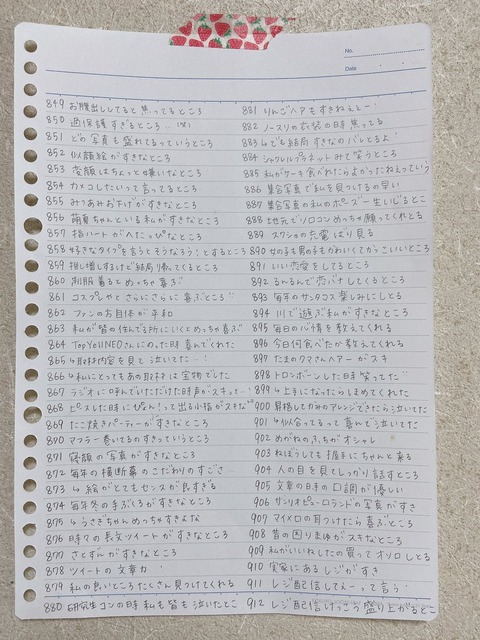 No.
Date
849 お腹出ししてると焦ってるところ
850 過保護すぎるところ…(笑)
851 どの写真も盛れてるっていうところ
852 似顔絵がすきなところ
853 変顔はちょっと嫌いなところ
854 カメコしたいって言ってるところ
855 みつあみおさげがすきなところ
856 萌夏ちゃんといる私がすきなところ
857 指ハートがへたっぴなところ
858 好きなタイプを言うとそうなろうとするところ
859 推し増しするけど結局帰ってくるところ
860 制服着るとめっちゃ喜ぶ
861 コスプレやとさらにさらに喜ぶところ
862 ファンのお目体が平和
863 私が皆の住んでる所にいくとめっちゃ喜ぶ
864 TopYellNEOさんにのった時喜んでくれた
865 ↳取材内容を見て泣いてた…!
866 ↳私にとってもあの取材は宝物でした
867 ラジオに呼んでいただけた時声がスキって…!
868 ピースした時にぴょん!って出る小指がスキな
869 たこ焼きパーティーがすきなところ
870 マフラー巻いてるのすきっていうところ
871 寝顔の写真がすきなところ
872 毎年の横断幕のこだわりのすごさ
873 ↳絵がとてもセンスが良すぎる
874 毎年冬の手ぶくろがすきなところ
875 ↳うさぎちゃんめっちゃすきよな
876 日々での長文ツイートがすきなところ
877 さとすんがすきなところ
878 ツイートの文章力
879 私の良いところたくさん見つけてくれる
880 研究生コンの日時私も皆も泣いたとこ
881 りんごヘアもすきねぇとー
882 ノースリの衣装の時焦ってる
883 ↳でも結局すきなのバレとるよ
884 シャクレルプラネットみて笑うところ
885 私がケーキ食べれたらよかったねぇっていう
886 集合写真で私を見つけるの早い
887 集合写真の私のポーズ一生いじるとこ
888 地元でソロコンめっちゃ願ってくれとる
889 スクショの充電ばり見る
890 女の子も男の子もかわいくてかっこいいところ
891 いい恋愛をしてるところ
892 るんるんで恋バナしてくるところ
893 毎年のサンタコス楽しみにしとる
894 川で遊ぶ私がすきなところ
895 毎日の心情を教えてくれる
896 今日何食べたか教えてくれる
897 たまのクマさんヘアーがスキ
898 トロンボーンした時"笑ってた"
899 ↳上手になったらしまめてくれた
900 昇格してカみのアレンジできたら泣いてた
901 ↳似合ってるって喜んで泣いてた
902 めがねのふちがオシャレ
903 ねぼうしても握手にちゃんと来る
904 人の目を見てしっかり話すところ
905 文章の日時の口調が優しい
906 サンリオピューロランドの写真がすき
907 マイメロの耳つけたら喜ぶところ
908 昔の困りまゆがスキなところ
909 私がいいねしたの買ってオソロしとる
910 実家にあるレジがすき
911 レジ配信してぇーって言う
912 レジ配信けっこう盛り上がるとこ